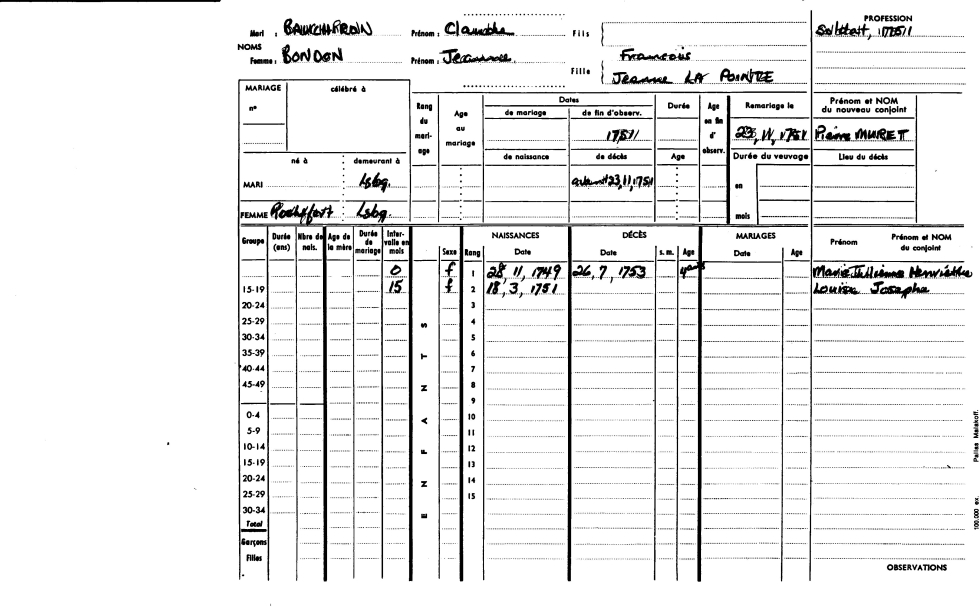 PROFESSION
Mari : Prénom : Claude Fils Soldat, 1751
NOMS
Femme : BONDON Prénom : Jeanne Fille François
Jeanne LA POINTE
MARIAGE célébré à
n°
Rang du mariage Age au mariage Dates Durée Age en fin d'observ. Remariage le Prénom et NOM du nouveau conjoint
de mariage de fin d'observ.
1751 23, 11, 1751 Pierre MURET
né à demeurant à de naissance de décès Age Durée du veuvage Lieu du décès
MARI Lsbg. avant 23,11,1751 en
FEMME Rochefort Lsbg. mois
Groupe Durée (ans) Nbre de nais. Age de la mère Durée de mariage Intervalle en mois ENFANTS Sexe Rang NAISSANCES Date DÉCÈS Date s. m. Age MARIAGES Date Age Prénom Prénom et NOM du conjoint
0 f 1 28, 11, 1749 26, 7, 1753 4 ans Marie Julienne Henriette
15-19 15 f 2 18, 3, 1751 Louise Josephe
20-24 3
25-29 4
30-34 5
35-39 6
40-44 7
45-49 8
9
0-4 10
5-9 11
10-14 12
15-19 13
20-24 14
25-29 15
30-34
Total
Garçons
Filles
OBSERVATIONS
100.000 ex. Parinas Malakoff.